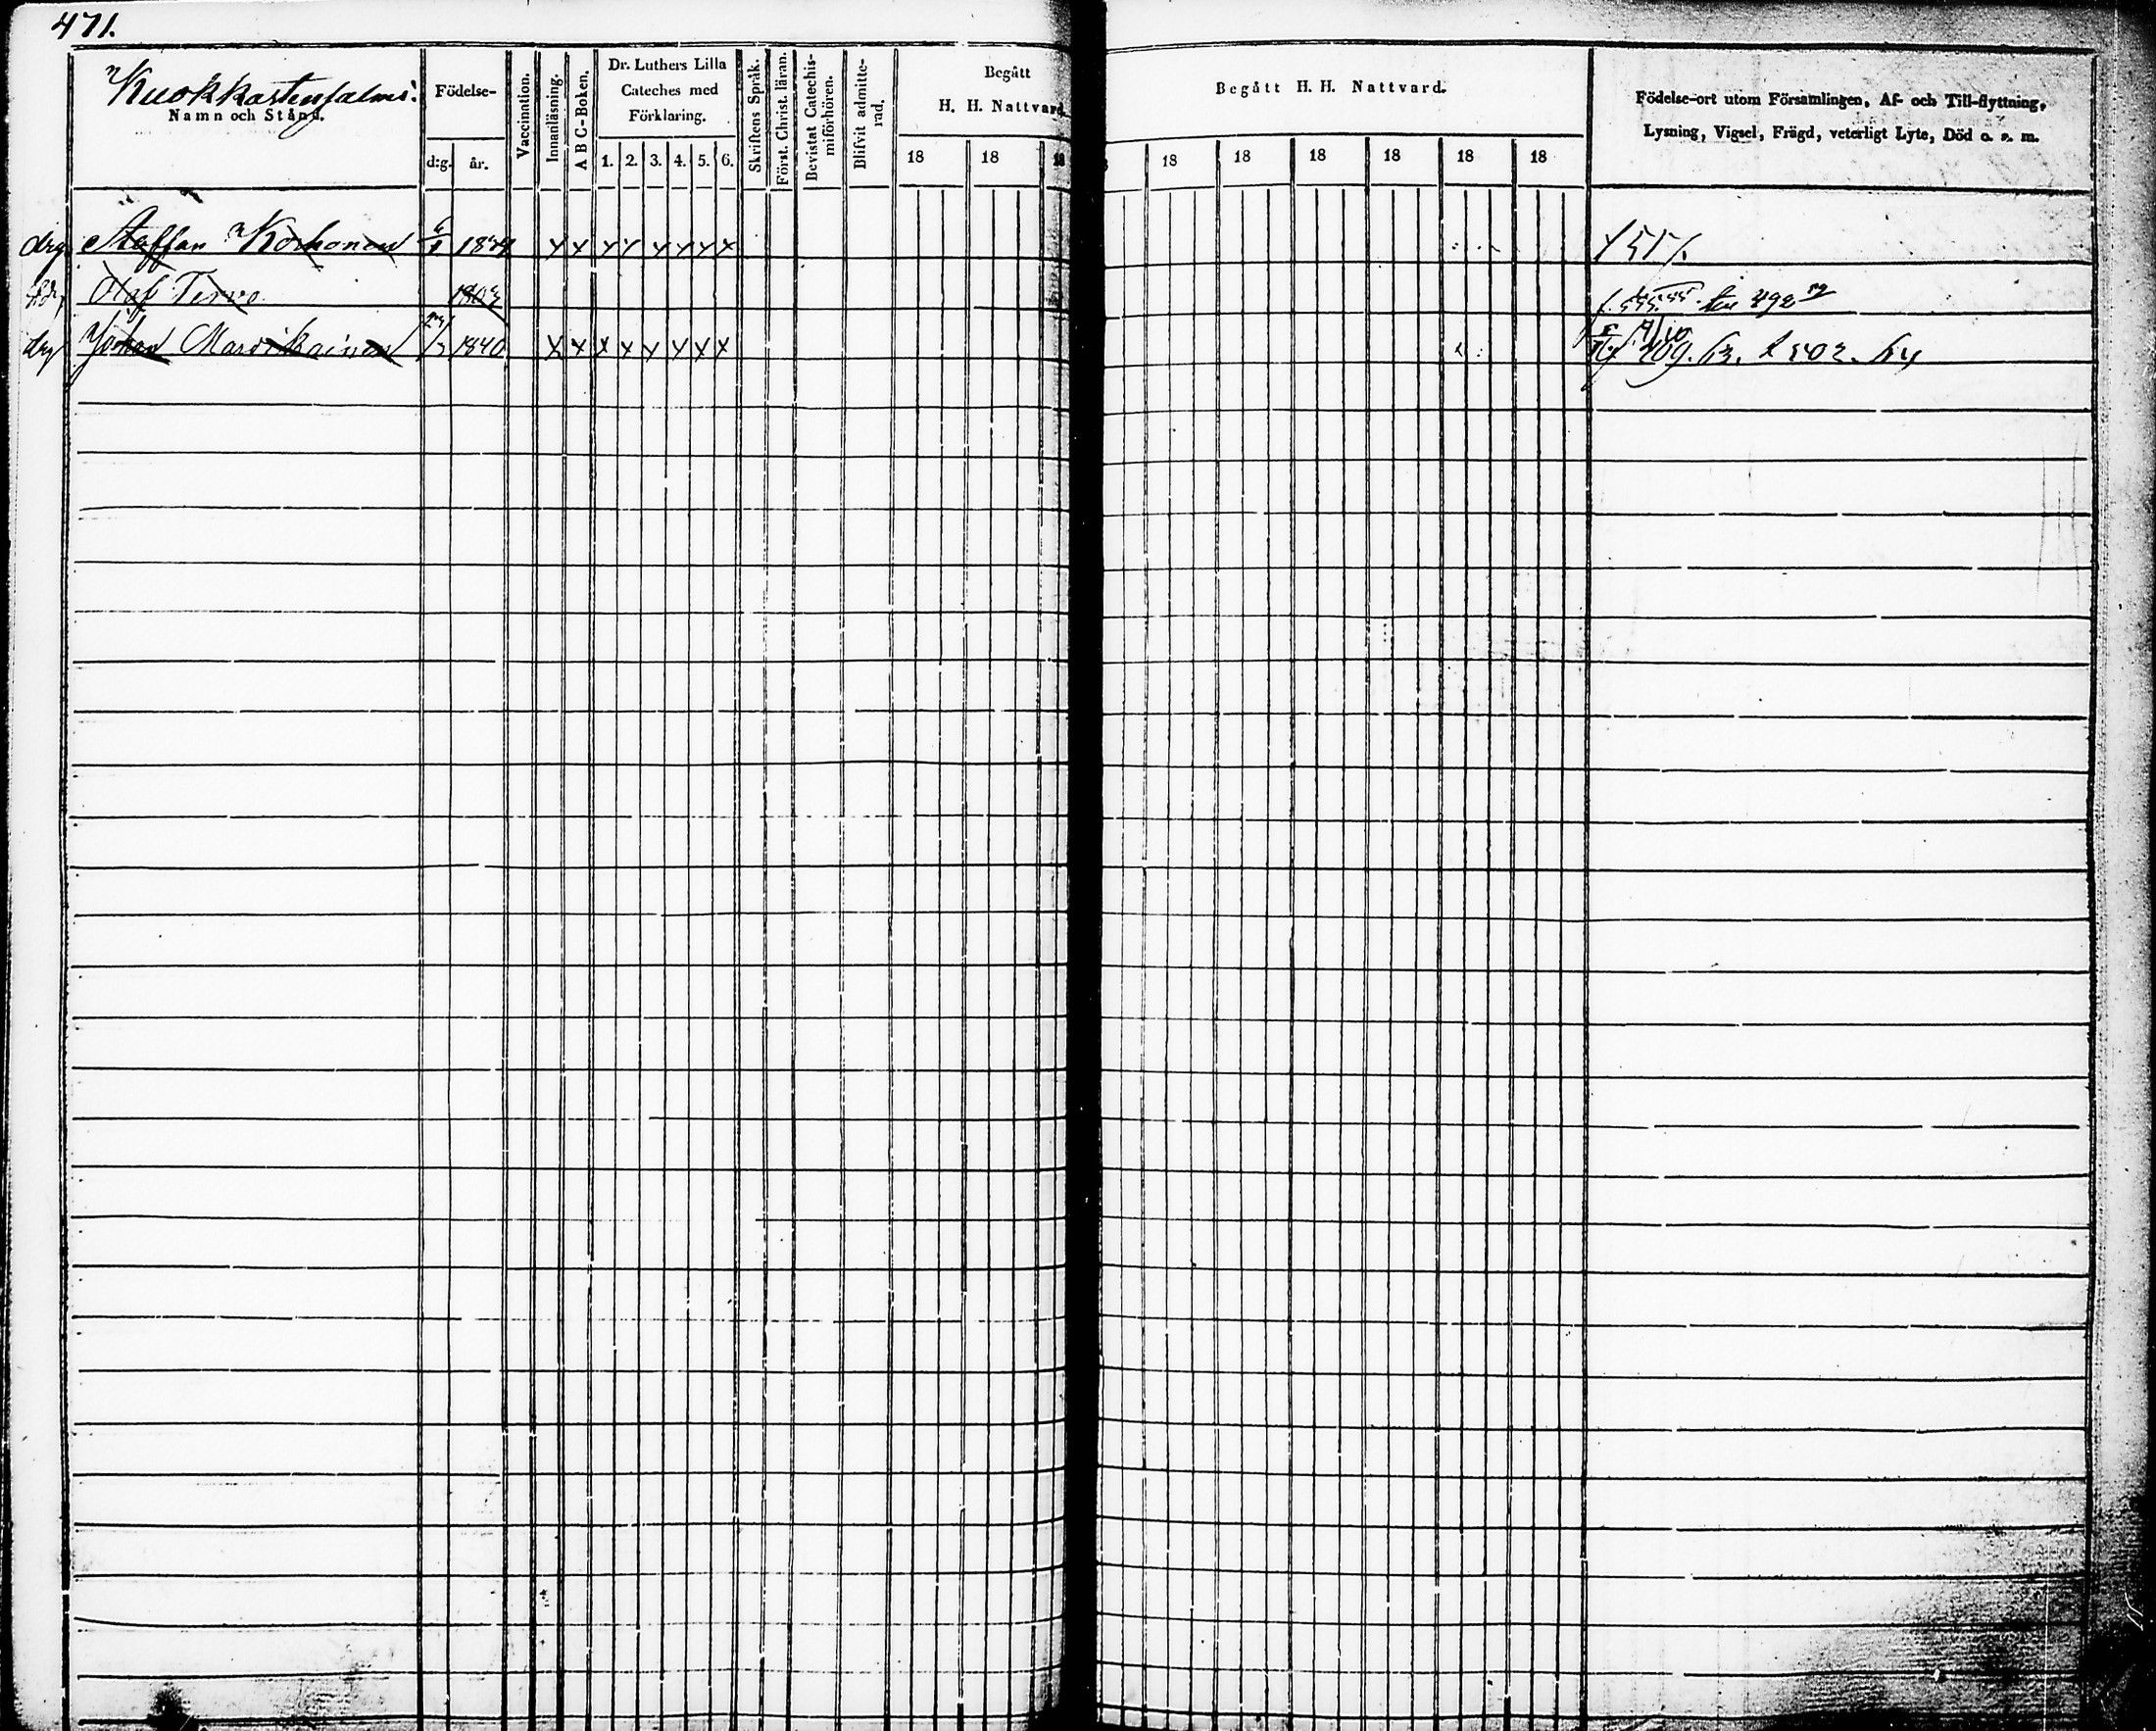 471.
Kuokkastensalmi.
Namn och Stånd.
Födelse-
d:g. år.
Vaccination.
Innanläsning.
A B C-Boken.
Dr. Luthers Lilla
Cateches med
Förklaring.
1. 2. 3. 4. 5. 6.
Skriftens Språk.
Först. Christ. läran.
Bevistat Catechis-
miförhören.
Blifvit admitte-
rad.
Begått
H. H. Nattvard.
18 18 18
Begått H. H. Nattvard.
18 18 18 18 18 18
Födelse-ort utom Församlingen, Af- och Till-flyttning,
Lysning, Vigsel, Frägd, veterligt Lyte, Död o. s. m.
drg Staffan Korhonen
Olaf Tervo 1803
drg Johan Marsikainen 1840 x x x x x x x x
209. 63.